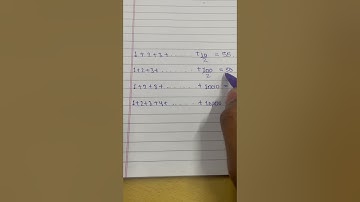 1+2+3+ ...... +10/2 = 55
1+2+3+ ...... +100/2 = 50
1+2+3+ ...... +1000 =
1+2+3+4+ ...... +10000